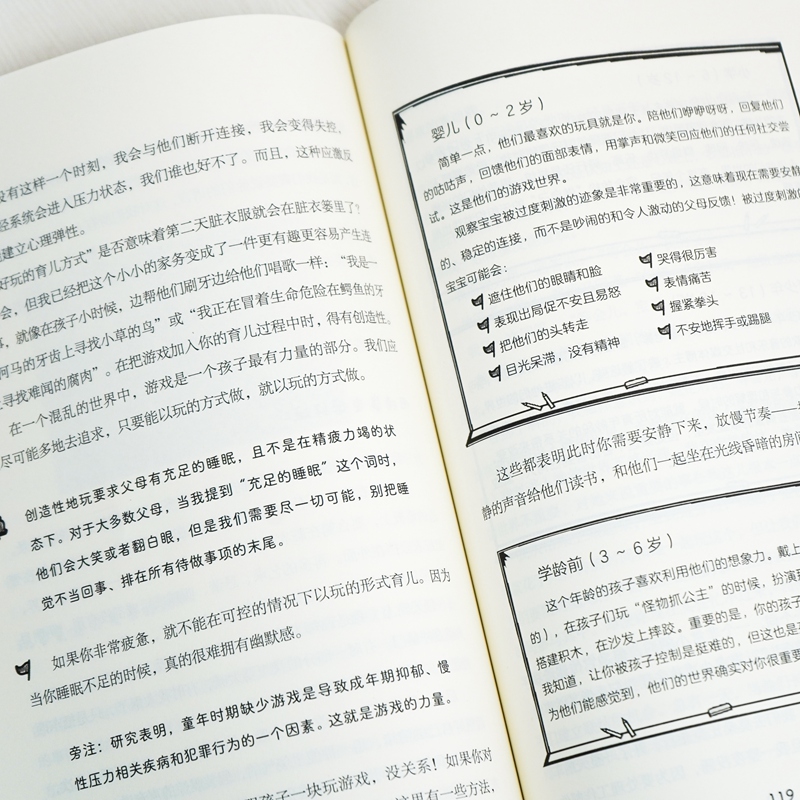 没有这样一个时刻，我会与他们断开连接，我会变得失控，
经系统会进入压力状态，我们谁也好不了。而且，这种应激反
建立心理弹性。
好玩的育儿方式”是否意味着第二天脏衣服就会在脏衣篓里了？
会，但我已经把这个小小的家务变成了一件更有趣更容易产生连
，就像在孩子小时候，边帮他们刷牙边给他们唱歌一样：“我是一
河马的牙齿上寻找小草的鸟”或“我正在冒着生命危险在鳄鱼的牙
寻找难闻的腐肉”。在把游戏加入你的育儿过程中时，得有创造性。
在一个混乱的世界中，游戏是一个孩子最有力量的部分。我们应
尽可能多地去追求，只要能以玩的方式做，就以玩的方式做。
创造性地玩要求父母有充足的睡眠，且不是在精疲力竭的状
态下。对于大多数父母，当我提到“充足的睡眠”这个词时，
他们会大笑或者翻白眼，但是我们需要尽一切可能，别把睡
觉不当回事、排在所有待做事项的末尾。
如果你非常疲惫，就不能在可控的情况下以玩的形式育儿。因为
当你睡眠不足的时候，真的很难拥有幽默感。
旁注：研究表明，童年时期缺少游戏是导致成年期抑郁、慢
性压力相关疾病和犯罪行为的一个因素。这就是游戏的力量。
孩子一块玩游戏，没关系！如果你对
这里有一些方法，
婴儿（0～2岁）
简单一点，他们最喜欢的玩具就是你。陪他们咿咿呀呀，回复他们
的咕咕声，回馈他们的面部表情，用掌声和微笑回应他们的任何社交尝
试。这是他们的游戏世界。
观察宝宝被过度刺激的迹象是非常重要的，这意味着现在需要安静
的、稳定的连接，而不是吵闹的和令人激动的父母反馈！被过度刺激的
宝宝可能会：
遮住他们的眼睛和脸
表现出局促不安且易怒
把他们的头转走
目光呆滞，没有精神
哭得很厉害
表情痛苦
握紧拳头
不安地挥手或踢腿
这些都表明此时你需要安静下来，放慢节奏——
静的声音给他们读书，和他们一起坐在光线昏暗的房间
学龄前（3～6岁）
这个年龄的孩子喜欢利用他们的想象力。戴上
的），在孩子们玩“怪物抓公主”的时候，扮演
搭建积木，在沙发上摔跤。重要的是，你的孩子
我知道，让你被孩子控制是挺难的，但这也是
为他们能感觉到，他们的世界确实对你很重要
119